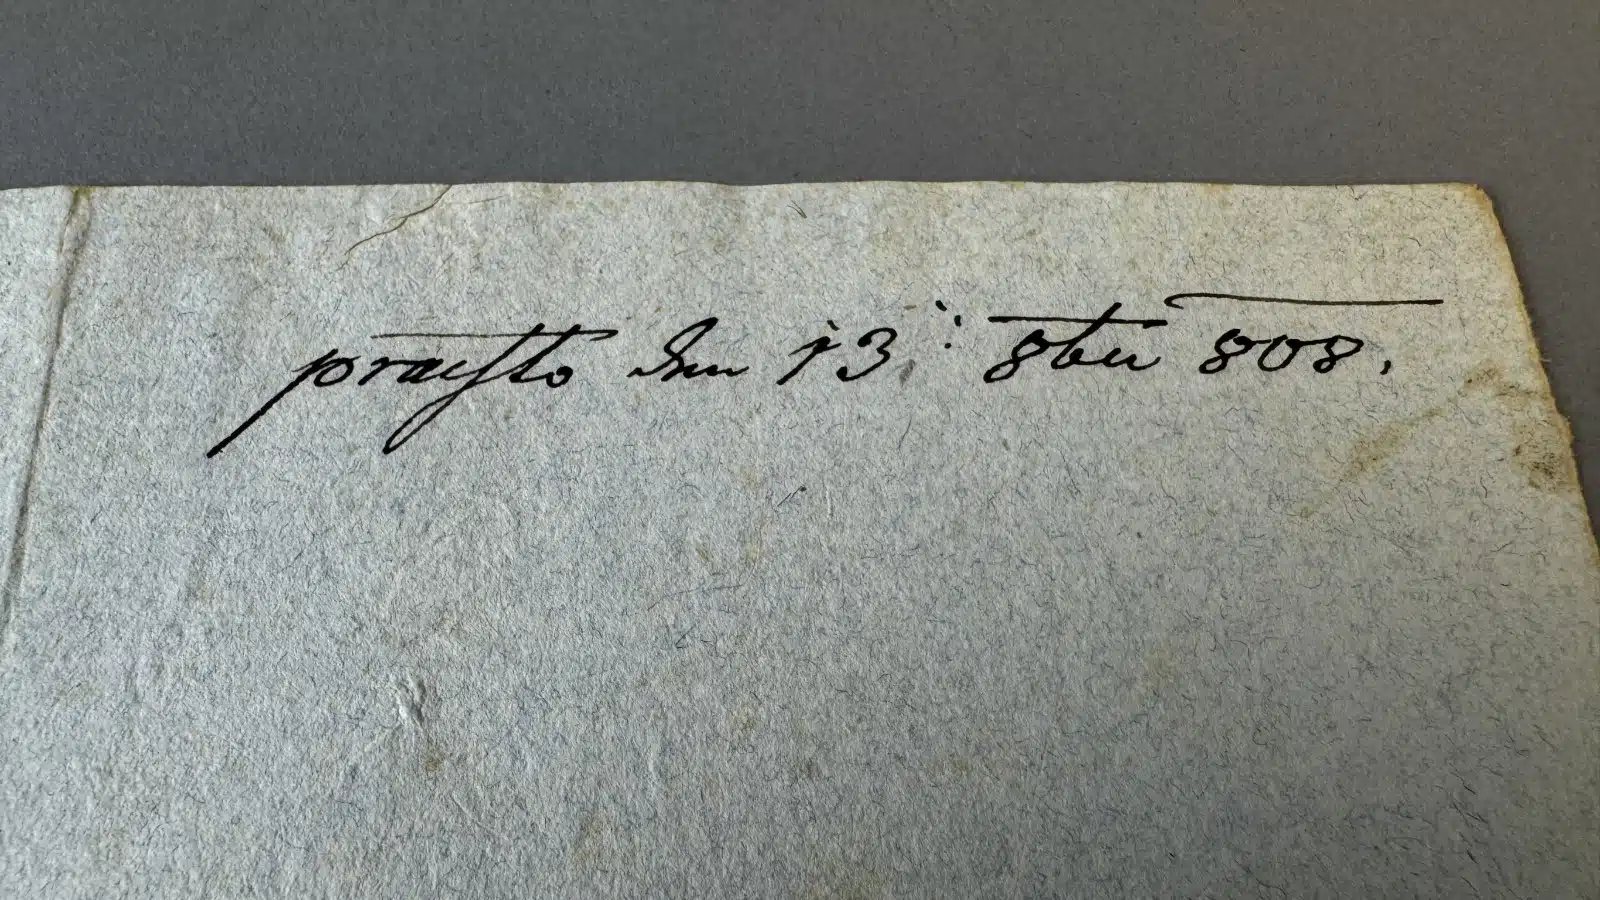 praesto den 13: 8ber 808.